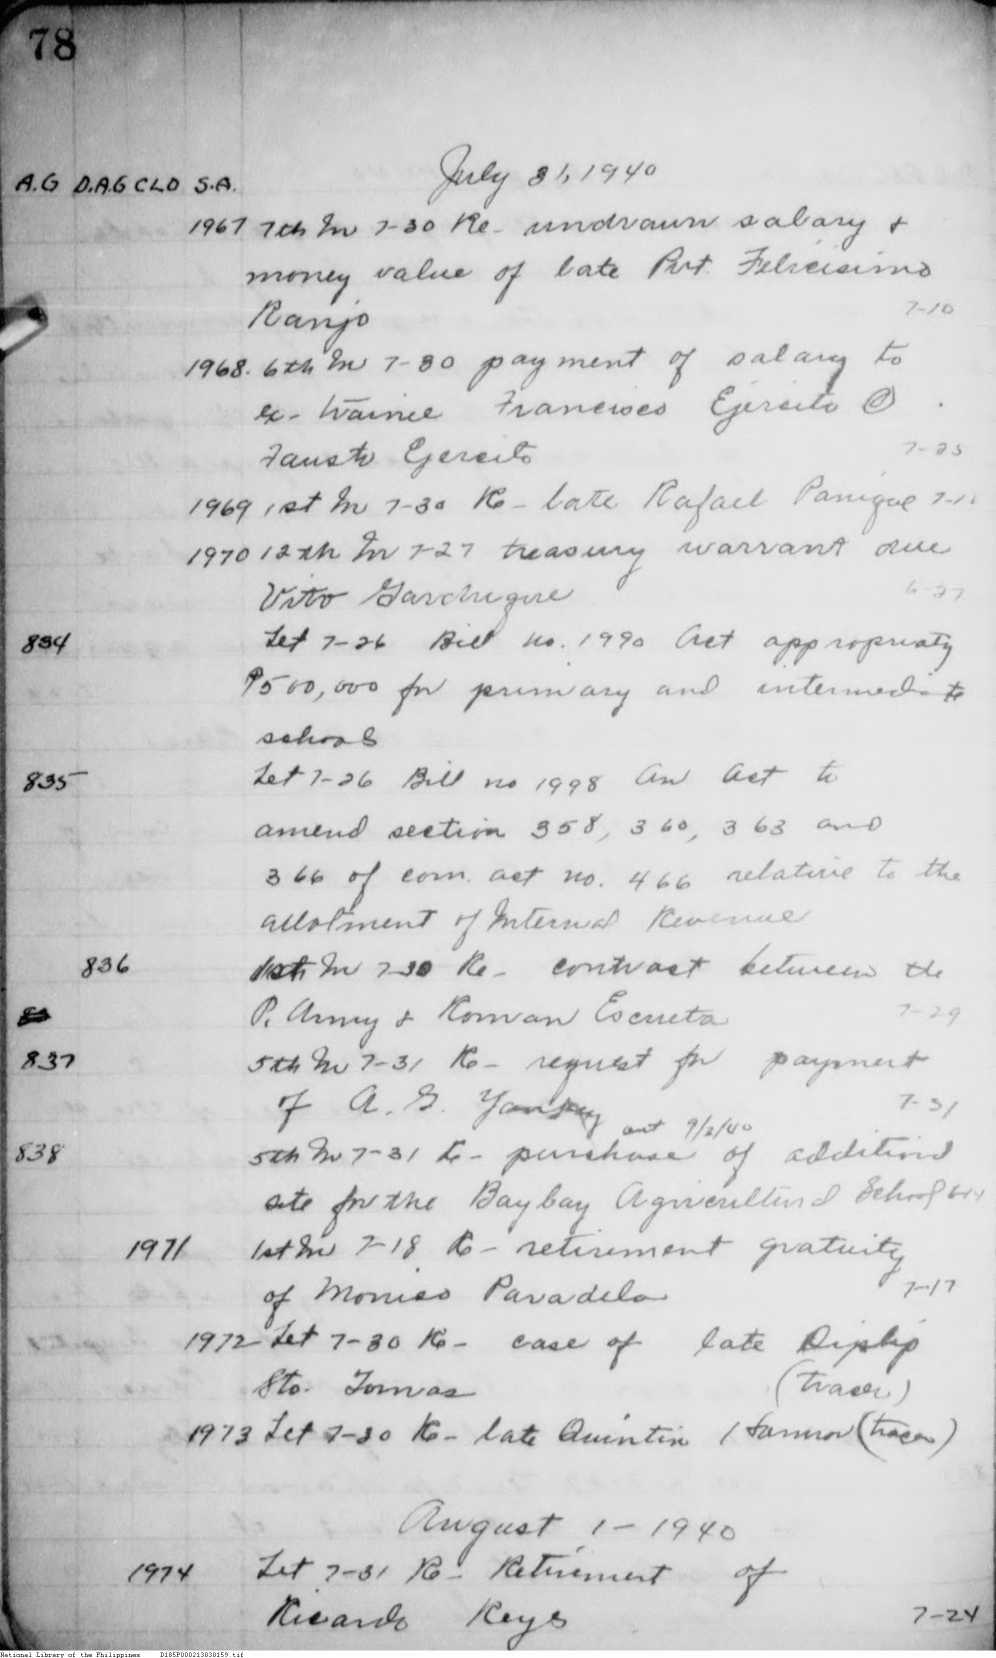 78
July 31, 1940
A.G D.A.G CLO S.A.
1967 7th In 7-30 Re- undrawn salary &
money value of late Pvt. Felicisimo
Ranjo 7-10
1968. 6th In 7-30 payment of salary to
ex- trainee Francisco Ejercito @
Fausto Ejercito 7-25
1969 1st In 7-30 Re- late Rafael Panique
1970 12th In 7-27 treasury warrant due
Vito 6-27
834 Let 7-26 Bill no. 1990 Act appropriatg
₱500,000 for primary and intermediate
schools
835 Let 7-26 Bill no 1998 An Act to
amend section 358, 360, 363 and
366 of com. act no. 466 relative to the
allotment of Internal Revenue
836 1st In 7-30 Re- contract between the
P. Army & Roman Escueta 7-29
837 5th In 7-31 Re- request for payment
of A. G. 7-31
ant 9/3/40
838 5th In 7-31 Re- purchase of additional
site for the Baybay Agricultural School
1971 1st In 7-18 Re- retirement gratuity
of Monico Paradela 7-17
1972 Let 7-30 Re- case of late
Sto. Tomas (tracer)
1973 Let 7-30 Re- late Quintin (tracer)
August 1-1940
1974 Let 7-31 Re- Retirement of
Ricardo Reys 7-24
National Library of the Philippines D185P000213838159.tif